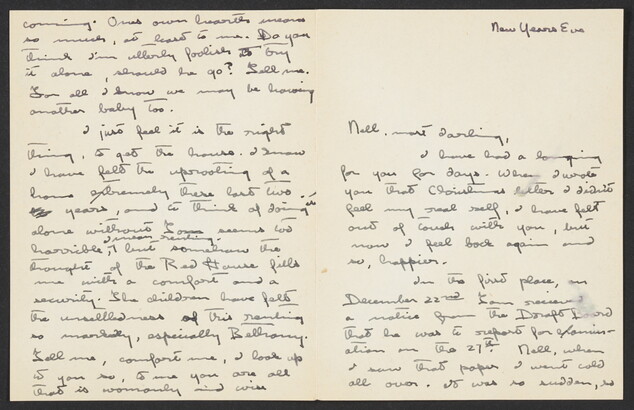 coming. Ones own hearths means
so much, at least to me. Do you
think I'm utterly foolish to try
it alone, should he go? Tell me.
For all I know we may be having
another baby too.
I just feel it is the right
thing, to get the house. I know
I have felt the uprooting of a
home extremely these last two
years, and to think of doing it
alone without Tom seems too
I mean renting,
horrible, but somehow the
thought of the Red House fills
me with a comfort and a
security. The children have felt
the unsettledness of this renting
so markedly, especially Bethany.
Tell me, comfort me, I look up
to you so, to me you are all
that is womanly and wise
New Years Eve
Nell, most darling,
I have had a longing
for you for days. When I wrote
you that Christmas letter I didn't
feel my real self, I have felt
out of touch with you, but
now I feel back again and
so, happier.
In the first place, on
December 22nd Tom received
a notice from the Draft Board
that he was to report for examin-
ation on the 27th. Nell, when
I saw that paper I went cold
all over. It was so sudden, so